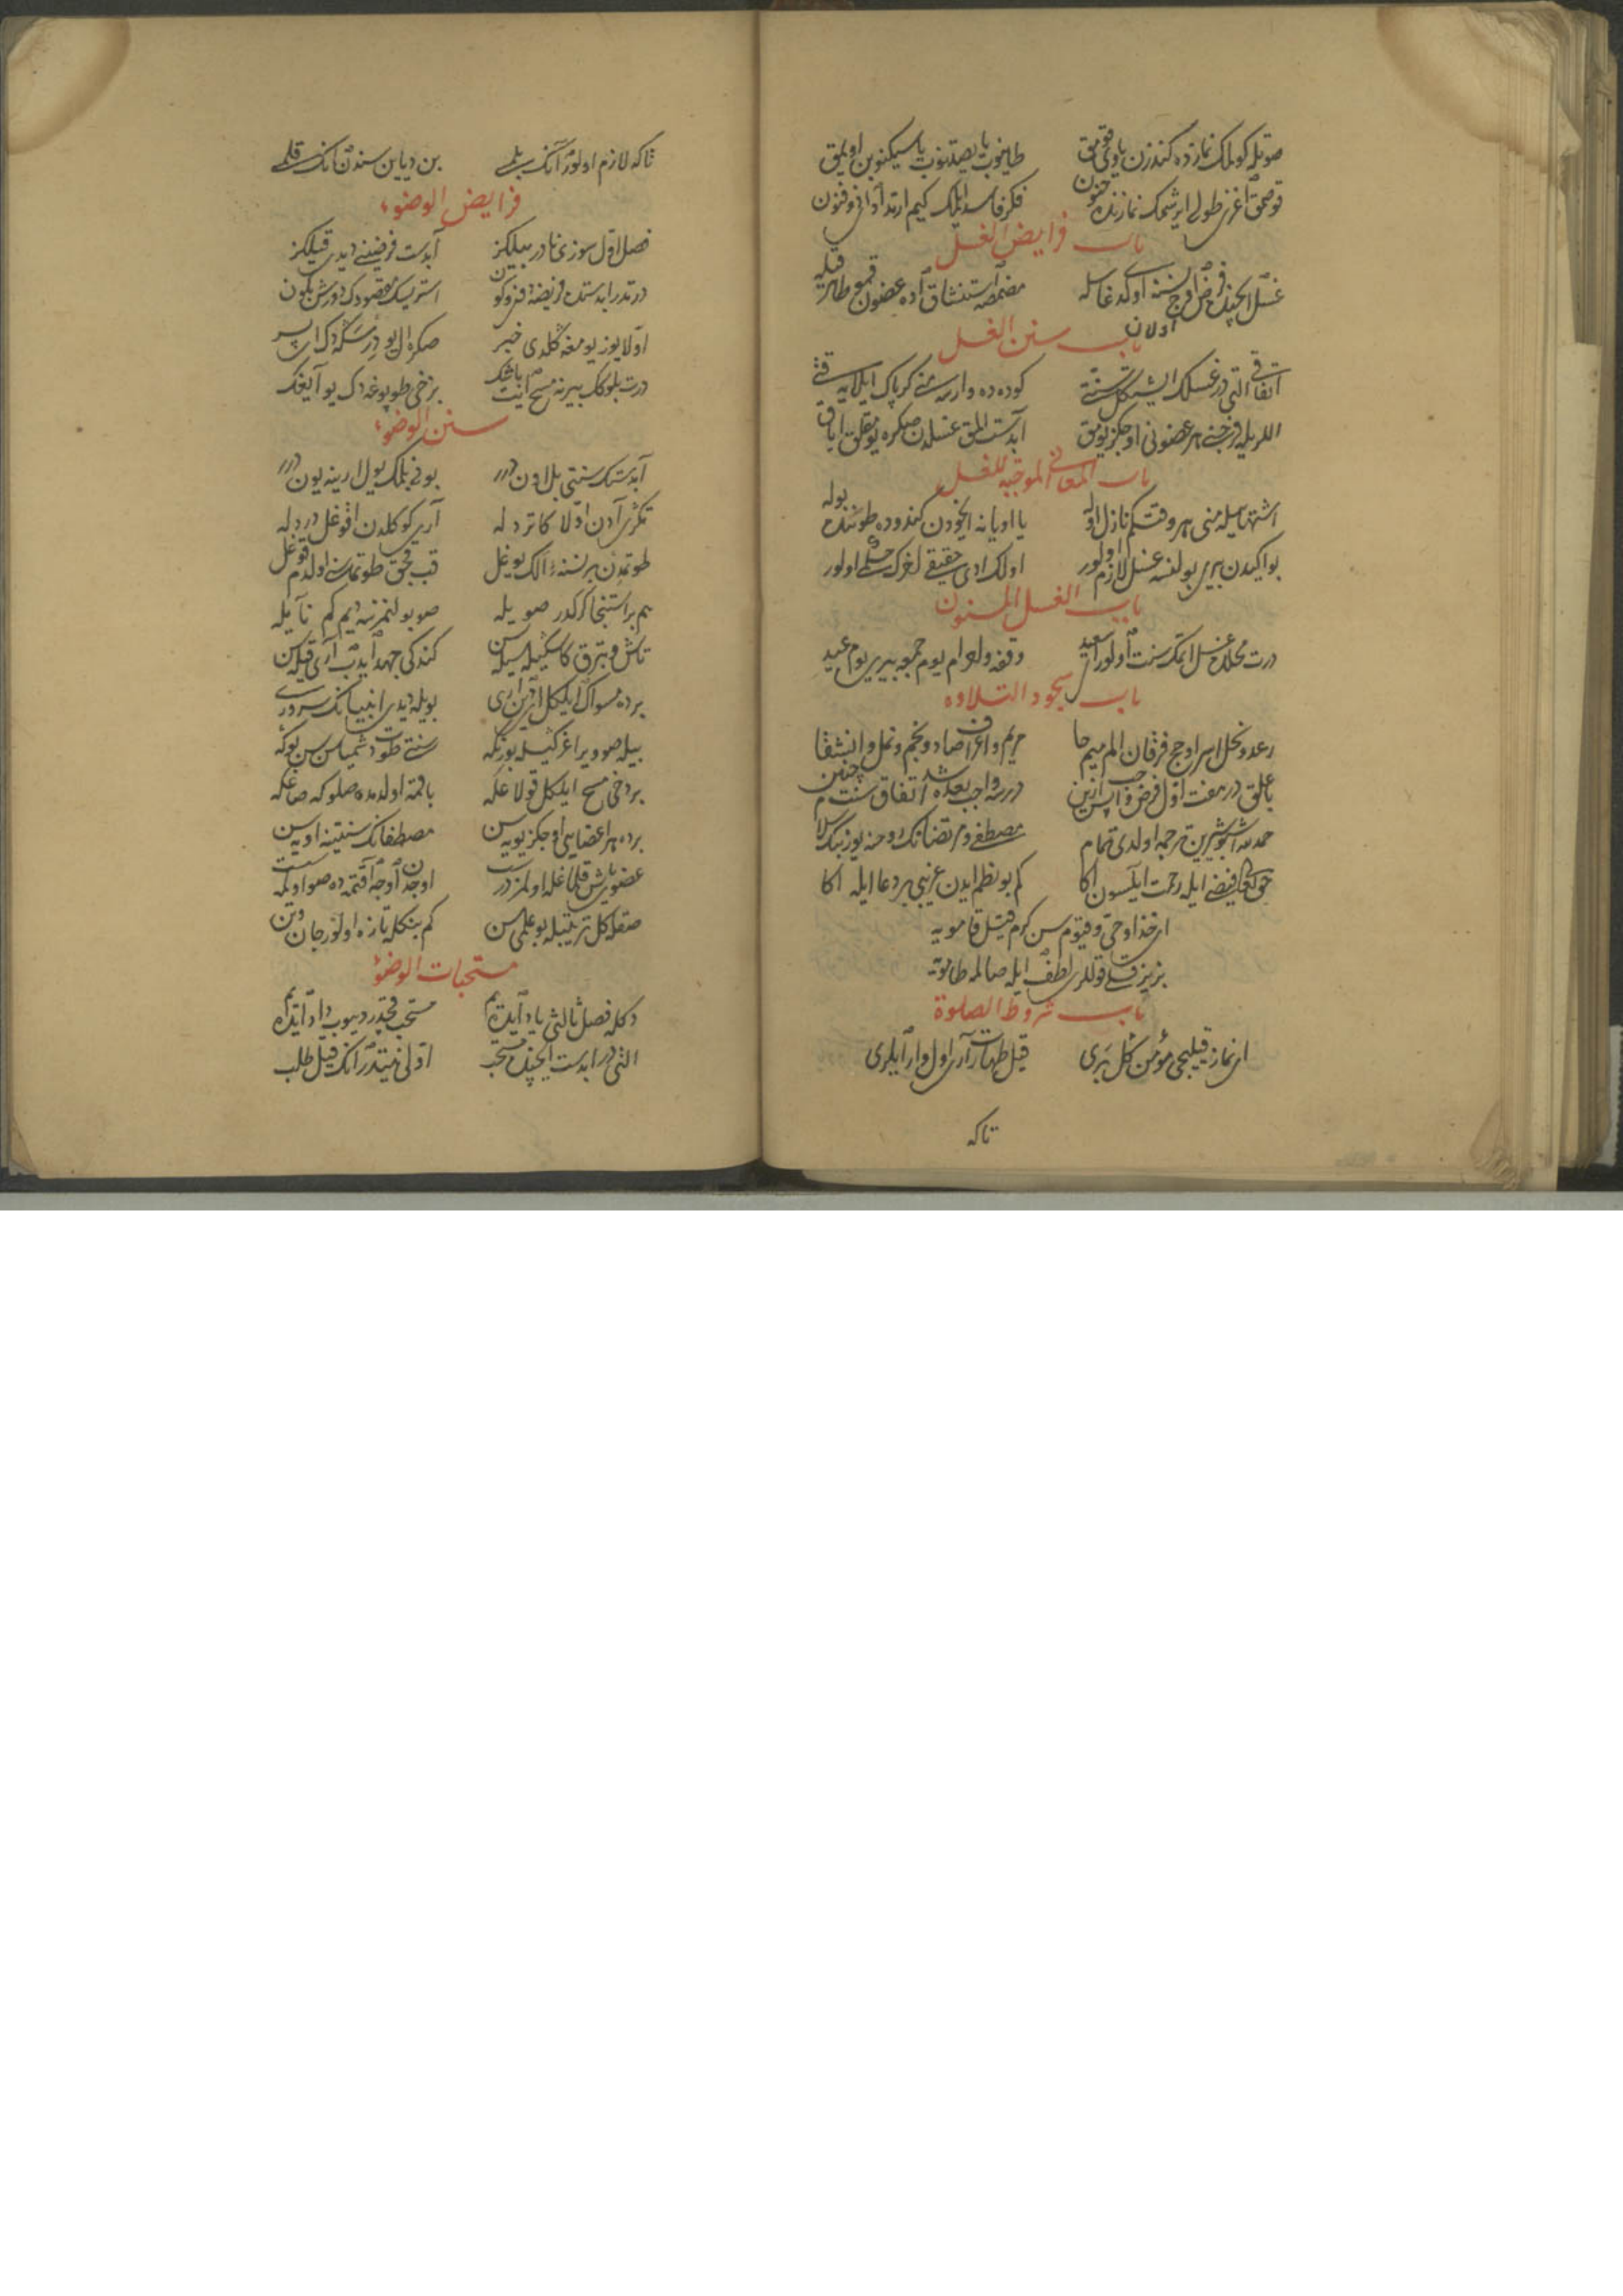 صوتیله کولمك نمازده كندزن یاوی قومق طاینوب یا یصدنوب یا سیكنوبن اویمق
قوصمق اغزی طولی ایرشمك نمازنده جنون فكر فاسد ایلمك كیم ارتد اوانی و فنون
باب فرایض الغسل
غسل ایچنده فرض اوچ نسنه ای اوكد غاسله مضمضه استنشاق آده عضون قمو طاهر قیله
باب سنن الغسل اولان
اتفاقی التی در غسلك ایشیتكل سنتی كوده ده وارسه نی كر پاك ایلایه
اللریله فرجنی هر عضونی اوچكز یومق آبدست المق غسلدن صكره یومقلق ایاق
باب المعانی الموجبه للغسل
اشتهاسیله منی هر وقت كم نازل اوله یا اویانه اویخودن كندوده طوننده بوله
بو ایكیدن بریی بولنسه غسل لازم اولور اولك ادی حقیقی اخرك حكمی اولور
باب الغسل المسنون
درت محلده غسل ایتمك سنت اولور ای سعید وقفه و احرام یوم جمعه بیری یوم عید
باب سجود التلاوه
رعد و نحل اسرا و حج فرقان الم میم حا مریم و اعراف صاد و نجم و نمل و انشقا
با علق در هفت اول فرض واجب سه ازین در سه واجب بعده شد اتفاق سنت چنین
حمد لله اشبو شیرین ترجمه اولدی تمام مصطفی و مرتضانك روحنه یوز بیك سلام
حق تعالی فیضی ایله رحمت ایلسون اكا كم بو نظم ایدن غریبی بر دعا ایله اكا
ای خدا و حی و قیوم سن كرم قیل قامویه
بز یزقلی قوللری لطف ایله صالمه طامویه
باب شروط الصلوة
ای نماز قیلیجی مؤمن كل بری قیل طهارت آری اول وار ایلری
تاكه
تاكه لازم اولور آنك بلمی بن دیاین سندن انك قلمی
فرایض الوضوء
فصل اول سوزی نادر بیلكز آبدست فرضینی دیدی قیلكز
درتدر ابدستده فریضه استرسك مقصودك دورش بكون
اولا یوز یومغه كلدی خبر صكره ال یو درسكه دك ای پسر
درت بلوكك بیرنه مسح ایت باشك برخی طوپوغه دك یو آیغك
سنن الوضوء
آبدستك سنتی بل اون درر بونی بلمك یول ارینه یون درر
تكری آدن اولا كاتر دله آری كوكلدن اقوغل درد له
طوتمدن بر نسنه الك یوغل قب قجق طوتمانی اولدم قوغل
هم بر استنجا كركدر صویله صو بولنمزسه دیم كم نایله
تاش و تبرق كاسكیله سیله سن كندكی جهد ایدب آری قیله سن
برده مسواك ایلكل اوین اری بویله دیدی انبیانك سروری
بیله صو ویر اغزكیله بوزنكه سنتی طوت دشمیاسن بوكه
بردخی مسح ایلكل قولاغكه باقمه اولدمده صلوكه صاغكه
برده هر اعضایی اوچكز یویه سن مصطفانك سنتینه اویه سن
صقله كل ترتیبله بو علمی سن كم بنكله تازه اولور جان و تن
مستحبات الوضوء
دكله فصل ثالثی یاد ایدیم مستحب قچدر دیوب داد ایدیم
التی در ابدست ایچنده مستحب اولی نیتدر انك قیل طلب